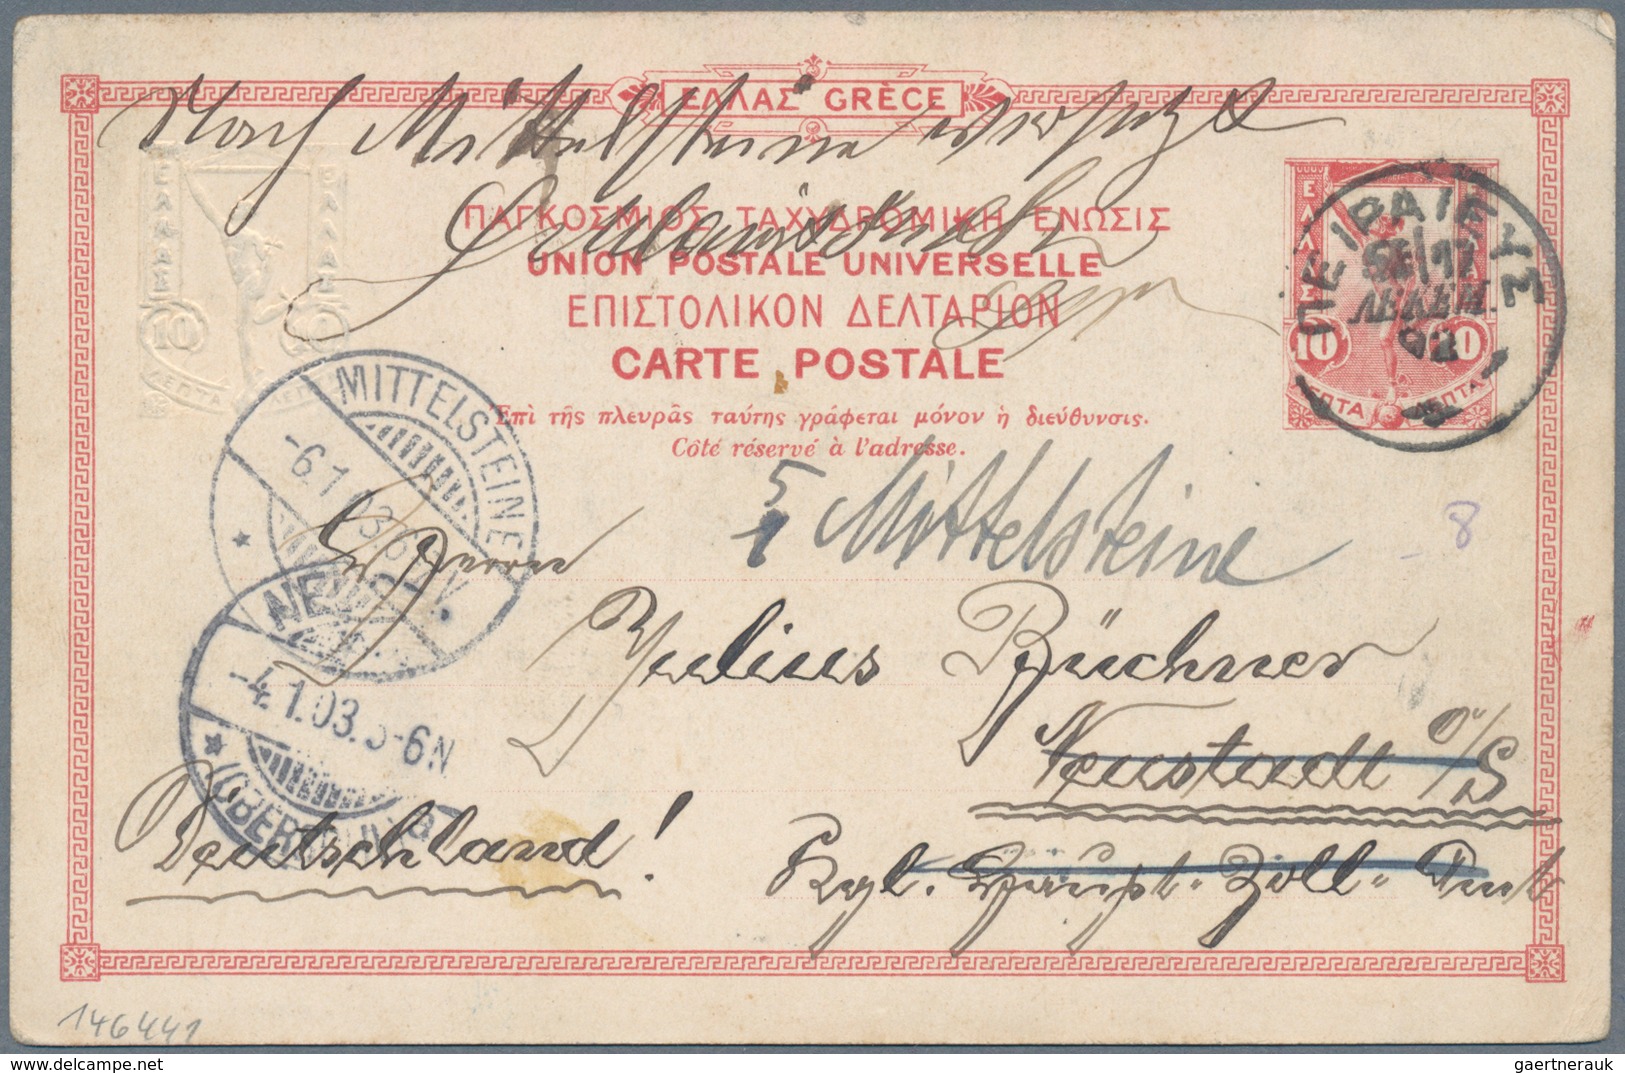 ΕΛΛΑΣ GRÈCE
Nach Mittelsteine versetzt
ΠΑΓΚΟΣΜΙΟΣ ΤΑΧΥΔΡΟΜΙΚΗ ΕΝΩΣΙΣ
UNION POSTALE UNIVERSELLE
ΕΠΙΣΤΟΛΙΚΟΝ ΔΕΛΤΑΡΙΟΝ
CARTE POSTALE
Ἐπὶ τῆς πλευρᾶς ταύτης γράφεται μόνον ἡ διεύθυνσις.
Côté réservé à l'adresse.
ΕΛΛΑΣ
10 10
ΛΕΠΤΑ ΛΕΠΤΑ
ΠΕΙΡΑΙΕΥΣ
ΔΕΚΕΜ.
02
ΕΛΛΑΣ ΕΛΛΑΣ
10 10
ΛΕΠΤΑ
MITTELSTEINE
-6.1.03.
5/1 Mittelsteine
8
Herrn
Julius Büchner
Neustadt O/S
Kgl. Haupt-Zoll-Amt
Deutschland!
-4.1.03. 5-6N
146441
delcampe.net
gaertnerauk